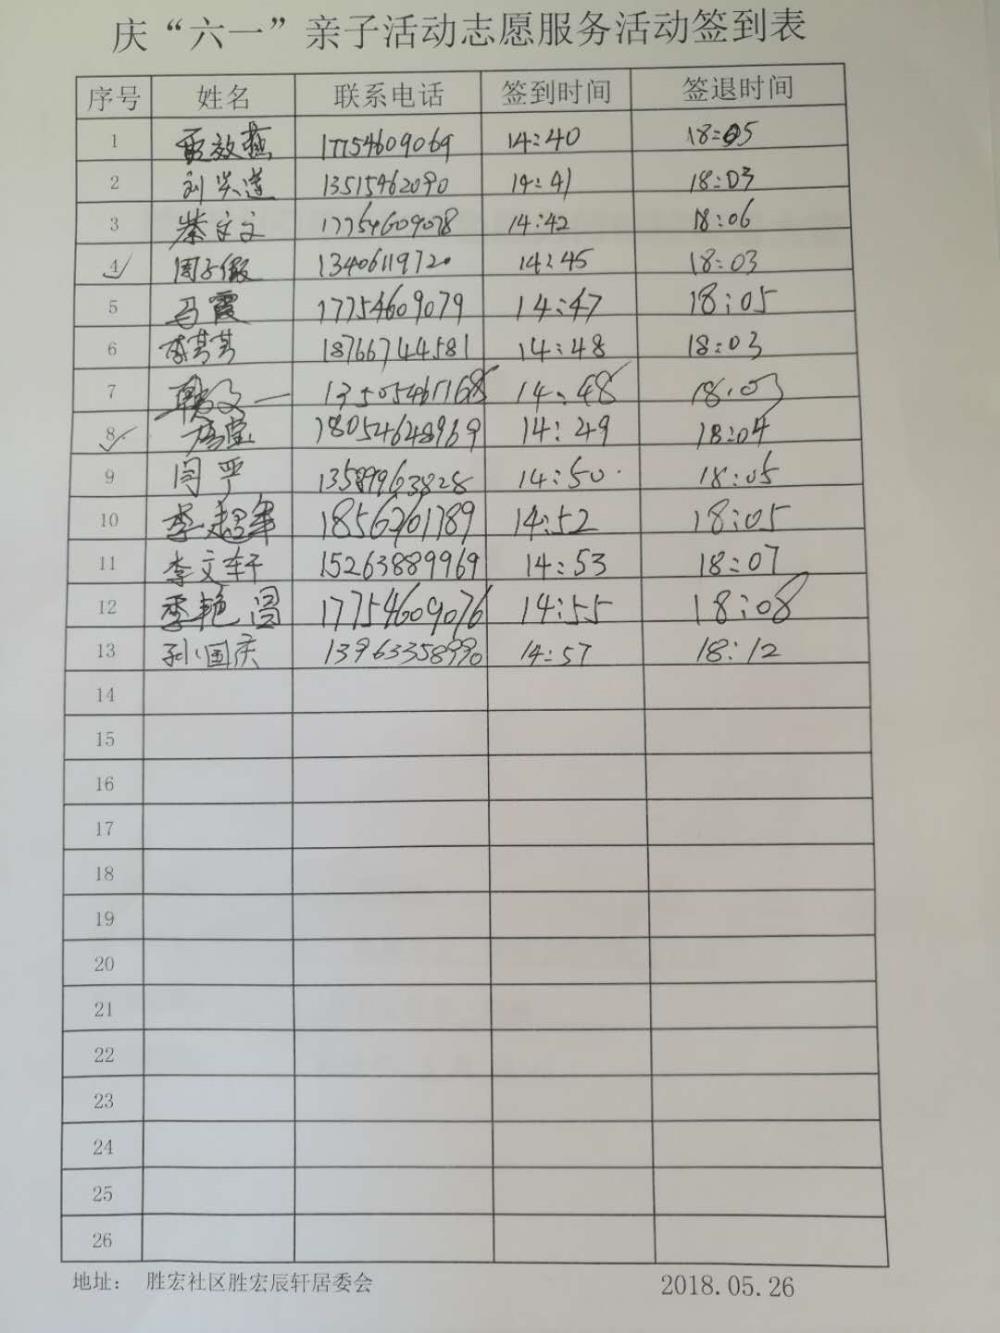 庆“六一”亲子活动志愿服务活动签到表
序号 姓名 联系电话 签到时间 签退时间
1 17754609069 14:40 18:05
2 刘兴莲 13515462090 14:41 18:03
3 蔡文文 17754609078 14:42 18:06
4 周子傲 13406119720 14:45 18:03
5 马霞 17754609079 14:47 18:05
6 李芳芳 18766744581 14:48 18:03
7 文一 13505461168 14:48 18:03
8 杨莹 18054648969 14:49 18:04
9 闫严 13589963828 14:50 18:05
10 李超军 1856201789 14:52 18:05
11 李文轩 15263889969 14:53 18:07
12 季艳阁 17754609076 14:55 18:08
13 孙国庆 13963358990 14:57 18:12
14
15
16
17
18
19
20
21
22
23
24
25
26
地址： 胜宏社区胜宏辰轩居委会 2018.05.26